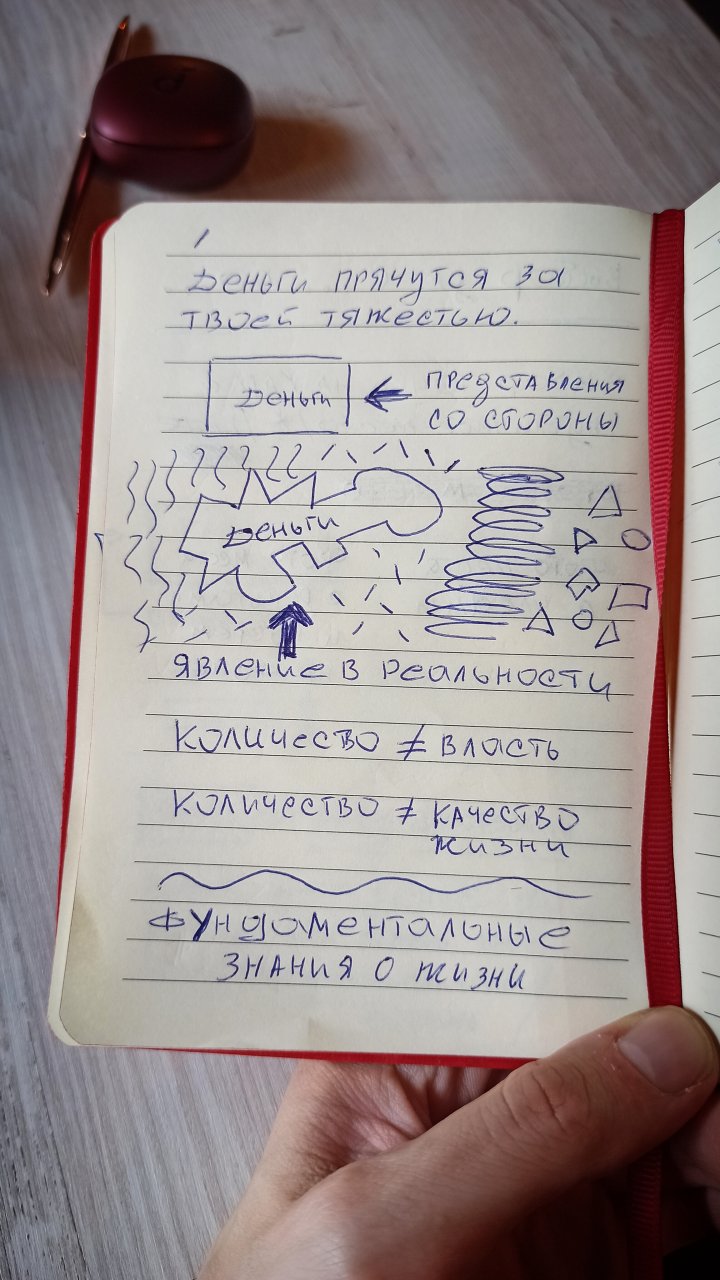 1
Деньги прячутся за
твоей тяжестью.
Деньги ← представления
со стороны
Деньги
явление в реальности
количество ≠ власть
количество ≠ качество
жизни
Фундаментальные
знания о жизни